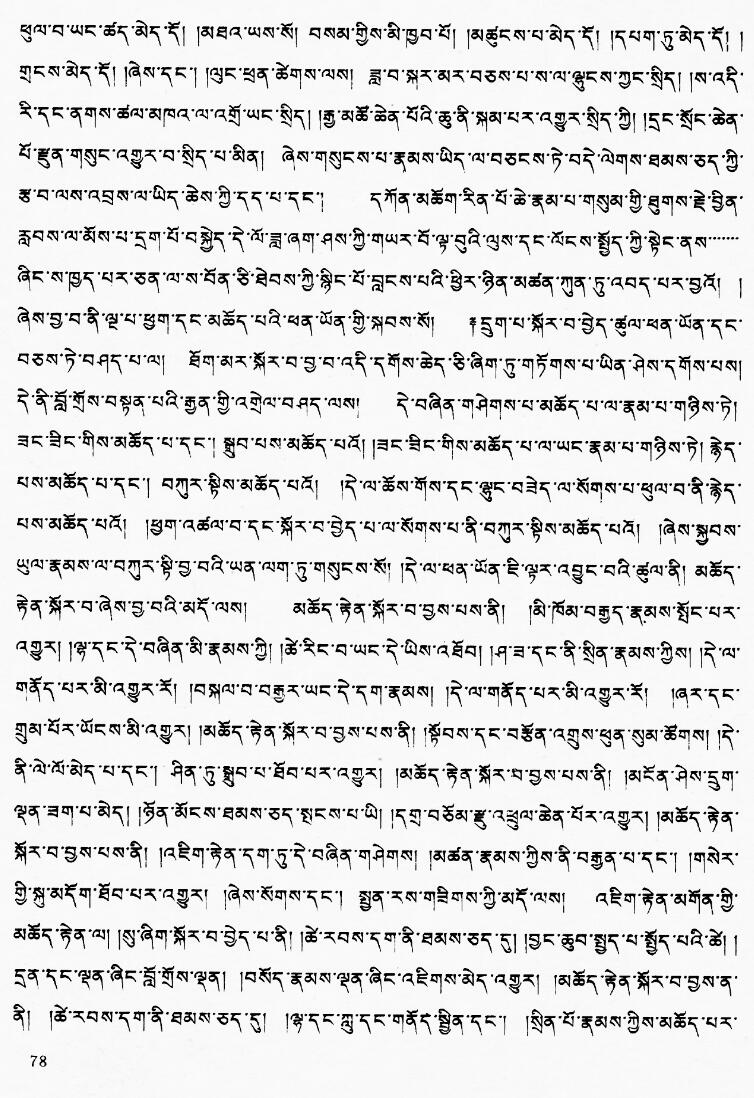 ཕུལ་བ་ཡང་ཚད་མེད་དོ། །མཐའ་ཡས་སོ། བསམ་གྱིས་མི་ཁྱབ་བོ། །མཚུངས་པ་མེད་དོ། །དཔག་ཏུ་མེད་དོ། །
གྲངས་མེད་དོ། །ཞེས་དང་། །ལུང་ཕྲན་ཚེགས་ལས། ཟླ་བ་སྐར་མར་བཅས་པ་ས་ལ་ལྷུངས་ཀྱང་སྲིད། །ས་འདི་
རི་དང་ནགས་ཚལ་མཁའ་ལ་འགྲོ་ཡང་སྲིད། །རྒྱ་མཚོ་ཆེན་པོའི་ཆུ་ནི་སྐམ་པར་འགྱུར་སྲིད་ཀྱི། །དྲང་སྲོང་ཆེན་
པོ་རྫུན་གསུང་འགྱུར་བ་སྲིད་པ་མིན། ཞེས་གསུངས་པ་རྣམས་ཡིད་ལ་བཅངས་ཏེ་བདེ་ལེགས་ཐམས་ཅད་ཀྱི་
རྩ་བ་ལས་འབྲས་ལ་ཡིད་ཆེས་ཀྱི་དད་པ་དང་། དཀོན་མཆོག་རིན་པོ་ཆེ་རྣམ་པ་གསུམ་གྱི་ཐུགས་རྗེ་བྱིན་
རླབས་ལ་མོས་པ་དྲག་པོ་བསྐྱེད་དེ་ལོ་ཟླ་ཞག་ཤས་ཀྱི་གཡར་བོ་ལྟ་བུའི་ལུས་དང་ལོངས་སྤྱོད་ཀྱི་སྟེང་ནས་……
ཞིང་ས་ཁྱད་པར་ཅན་ལ་ས་བོན་ཅི་ཐེབས་ཀྱི་སྙིང་པོ་བླངས་པའི་ཕྱིར་ཉིན་མཚན་ཀུན་ཏུ་འབད་པར་བྱའོ། །
ཞེས་བྱ་བ་ནི་ལྔ་པ་ཕྱག་དང་མཆོད་པའི་ཕན་ཡོན་གྱི་སྐབས་སོ། །དྲུག་པ་སྐོར་བ་བྱེད་ཚུལ་ཕན་ཡོན་དང་
བཅས་ཏེ་བཤད་པ་ལ། ཐོག་མར་སྐོར་བ་བྱ་བ་འདི་དགོས་ཆེད་ཅི་ཞིག་ཏུ་གཏོགས་པ་ཡིན་ཤེས་དགོས་པས།
དེ་ནི་བློ་གྲོས་བསྟན་པའི་རྒྱན་གྱི་འགྲེལ་བཤད་ལས། དེ་བཞིན་གཤེགས་པ་མཆོད་པ་ལ་རྣམ་པ་གཉིས་ཏེ།
ཟང་ཟིང་གིས་མཆོད་པ་དང་། སྒྲུབ་པས་མཆོད་པའོ། །ཟང་ཟིང་གིས་མཆོད་པ་ལ་ཡང་རྣམ་པ་གཉིས་ཏེ། རྙེད་
པས་མཆོད་པ་དང་། བཀུར་སྟིས་མཆོད་པའོ། །དེ་ལ་ཆོས་གོས་དང་ལྷུང་བཟེད་ལ་སོགས་པ་ཕུལ་བ་ནི་རྙེད་
པས་མཆོད་པའོ། །ཕྱག་འཚལ་བ་དང་སྐོར་བ་བྱེད་པ་ལ་སོགས་པ་ནི་བཀུར་སྟིས་མཆོད་པའོ། །ཞེས་སྐྱབས་
ཡུལ་རྣམས་ལ་བཀུར་སྟི་བྱ་བའི་ཡན་ལག་ཏུ་གསུངས་སོ། །དེ་ལ་ཕན་ཡོན་ཇི་ལྟར་འབྱུང་བའི་ཚུལ་ནི། མཆོད་
རྟེན་སྐོར་བ་ཞེས་བྱ་བའི་མདོ་ལས། མཆོད་རྟེན་སྐོར་བ་བྱས་པས་ནི། །མི་ཁོམ་བརྒྱད་རྣམས་སྤོང་པར་
འགྱུར། །ལྷ་དང་དེ་བཞིན་མི་རྣམས་ཀྱི། །ཚེ་རིང་བ་ཡང་དེ་ཡིས་འཐོབ། །ཤ་ཟ་དང་ནི་སྲིན་རྣམས་ཀྱིས། །དེ་ལ་
གནོད་པར་མི་འགྱུར་རོ། །བསྐལ་བ་བརྒྱར་ཡང་དེ་དག་རྣམས། །དེ་ལ་གནོད་པར་མི་འགྱུར་རོ། །ཞར་དང་
གྲུམ་པོར་ཡོངས་མི་འགྱུར། །མཆོད་རྟེན་སྐོར་བ་བྱས་པས་ནི། །སྟོབས་དང་བརྩོན་འགྲུས་ཕུན་སུམ་ཚོགས། །དེ་
ནི་ལེ་ལོ་མེད་པ་དང་། ཤིན་ཏུ་སྒྲུབ་པ་ཐོབ་པར་འགྱུར། །མཆོད་རྟེན་སྐོར་བ་བྱས་པས་ནི། །མངོན་ཤེས་དྲུག་
ལྡན་ཟག་པ་མེད། །ཉོན་མོངས་ཐམས་ཅད་སྤངས་པ་ཡི། །དགྲ་བཅོམ་རྫུ་འཕྲུལ་ཆེན་པོར་འགྱུར། །མཆོད་རྟེན་
སྐོར་བ་བྱས་པས་ནི། །འཇིག་རྟེན་དག་ཏུ་དེ་བཞིན་གཤེགས། །མཚན་རྣམས་ཀྱིས་ནི་བརྒྱན་པ་དང་། །གསེར་
གྱི་སྐུ་མདོག་ཐོབ་པར་འགྱུར། །ཞེས་སོགས་དང་། སྤྱན་རས་གཟིགས་ཀྱི་མདོ་ལས། འཇིག་རྟེན་མགོན་གྱི་
མཆོད་རྟེན་ལ། །སུ་ཞིག་སྐོར་བ་བྱེད་པ་ནི། །ཚེ་རབས་དག་ནི་ཐམས་ཅད་དུ། །བྱང་ཆུབ་སྤྱད་པ་སྤྱོད་པའི་ཚེ། །
དྲན་དང་ལྡན་ཞིང་བློ་གྲོས་ལྡན། །བསོད་རྣམས་ལྡན་ཞིང་འཇིགས་མེད་འགྱུར། །མཆོད་རྟེན་སྐོར་བ་བྱས་ན་
ནི། །ཚེ་རབས་དག་ནི་ཐམས་ཅད་དུ། །ལྷ་དང་ཀླུ་དང་གནོད་སྦྱིན་དང་། །སྲིན་པོ་རྣམས་ཀྱིས་མཆོད་པར་
78